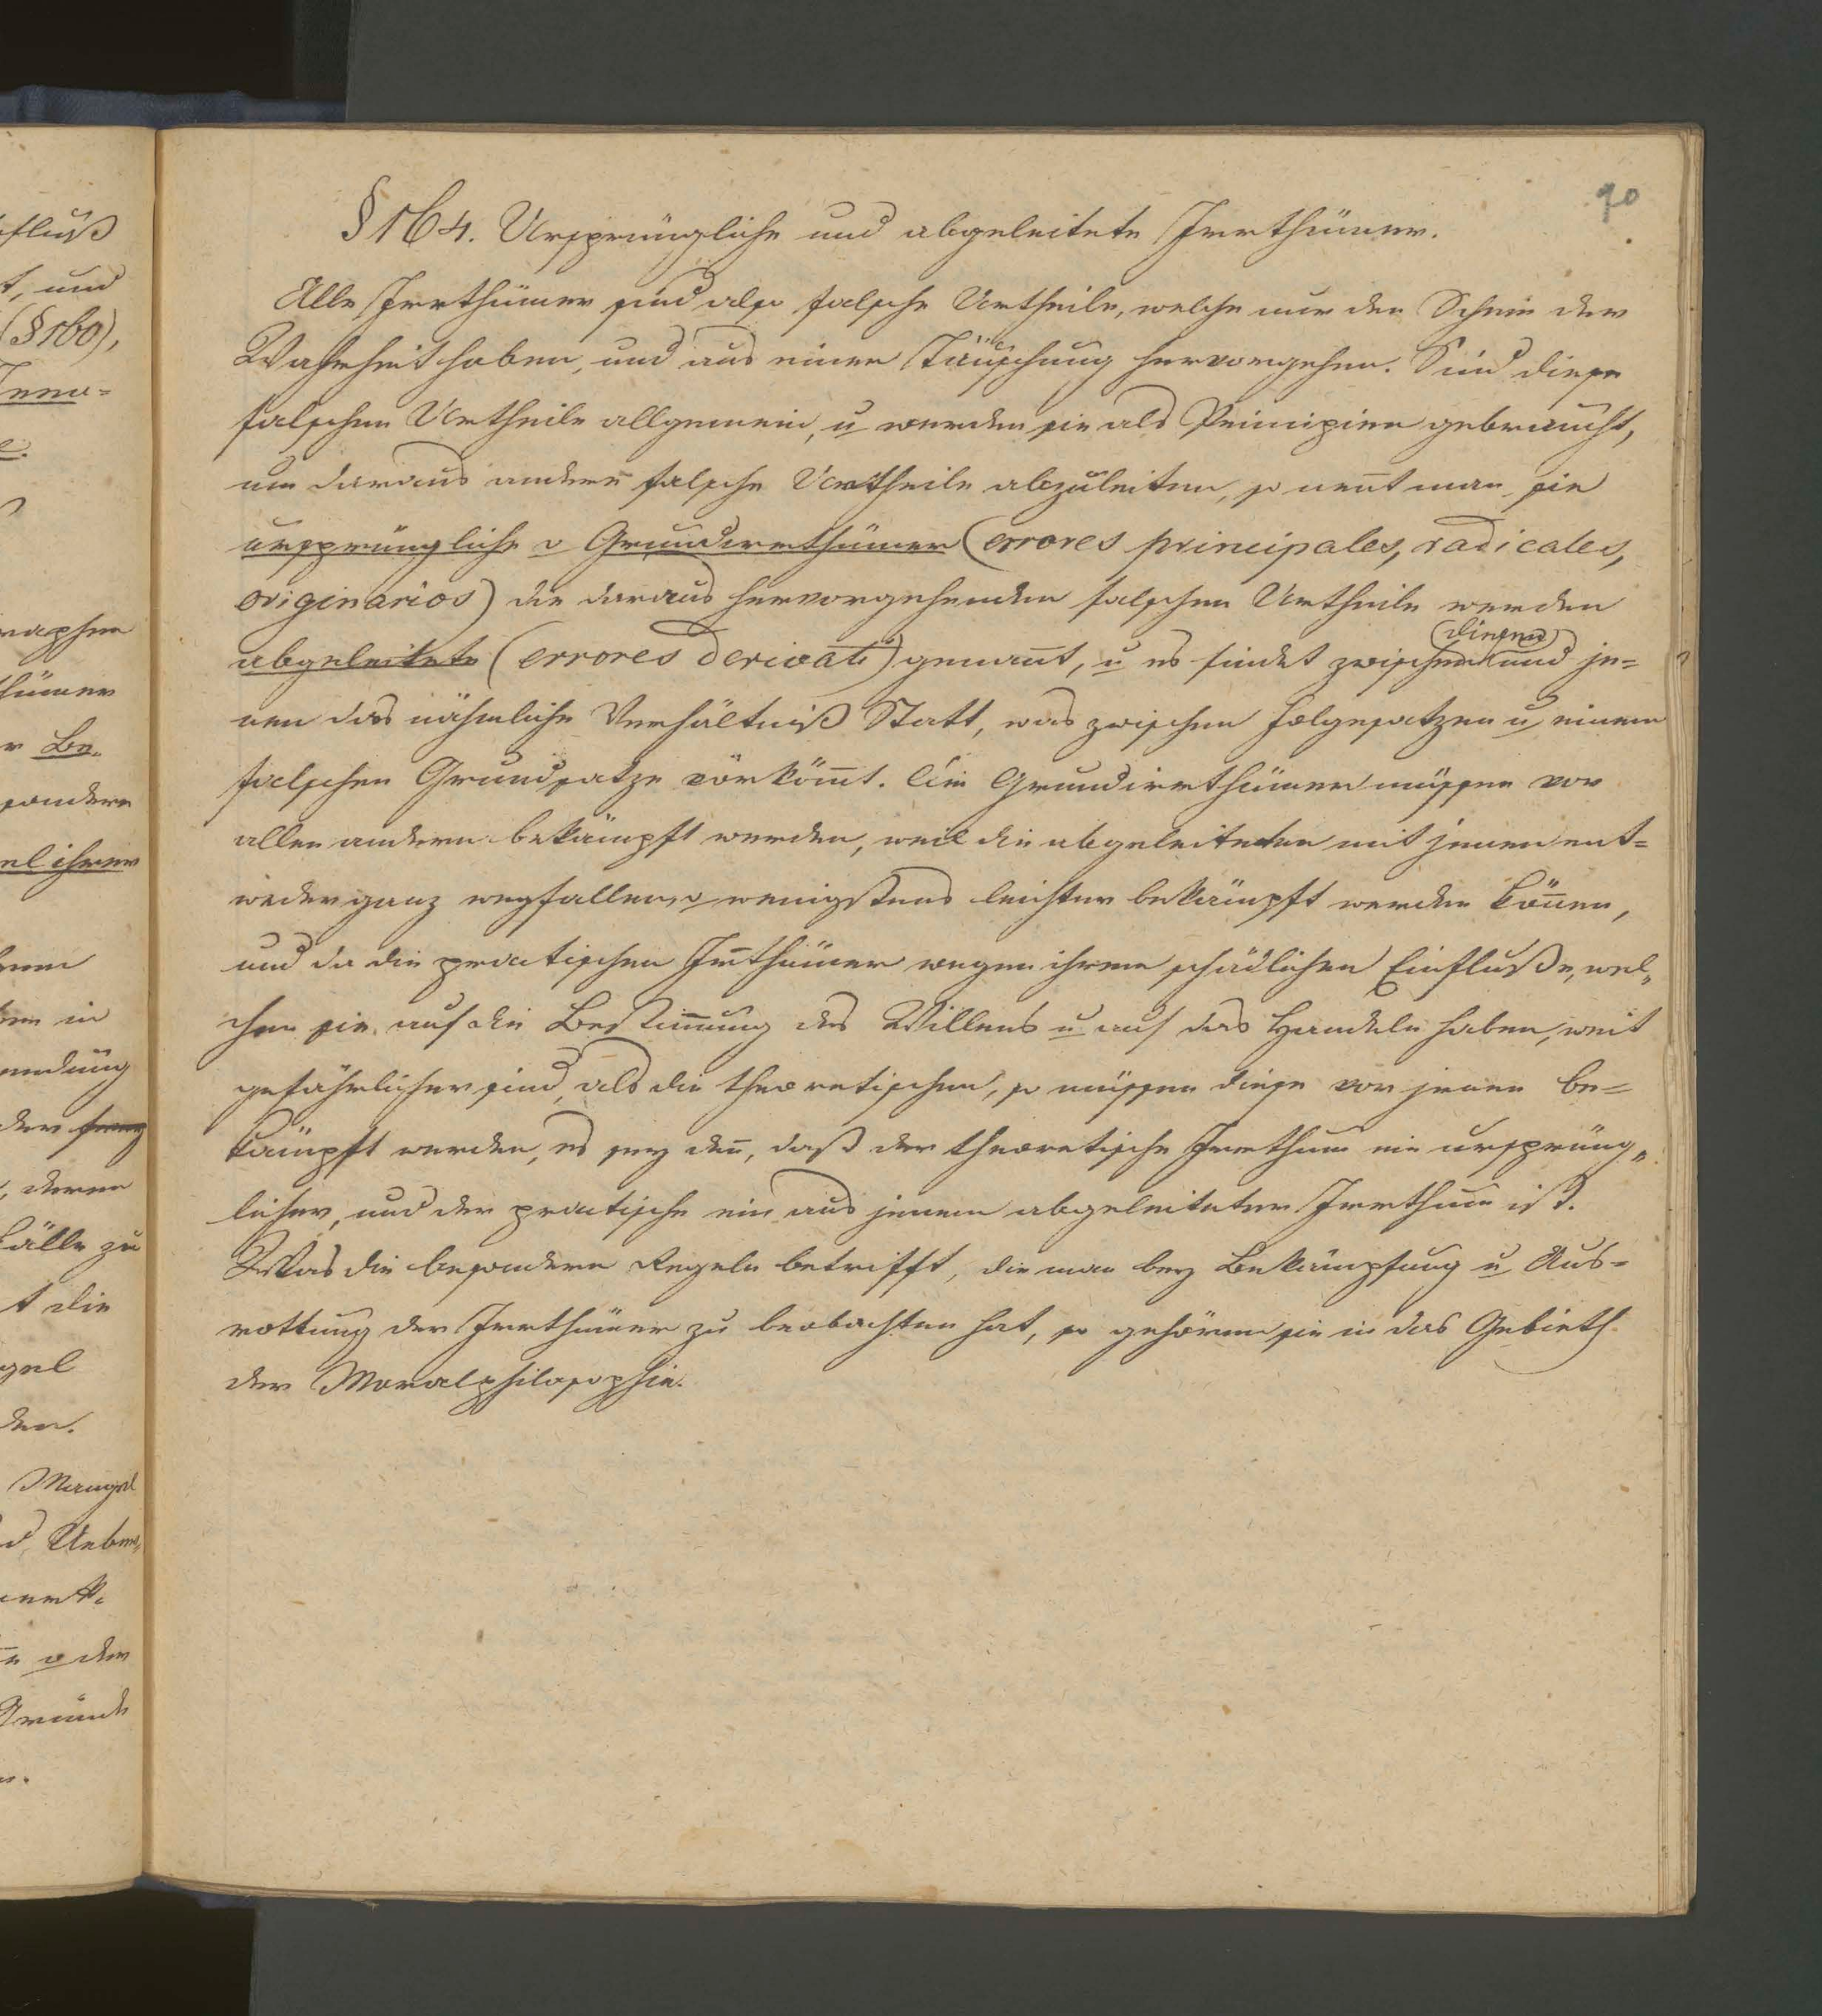 90
§ 164. Ursprüngliche und abgeleitete Irrthümer.
Alle Irrthümer sind also falsche Urtheile, welche nur den Schein der
Wahrheit haben, und aus einer Täuschung hervorgehen. Sind diese
falschen Urtheile allgemein, u werden sie als Principien gebraucht,
um daraus andere falsche Urtheile abzuleiten, so neñt man sie
ursprüngliche o Grundirrthümer (errores principales, radicales,
originarios) die daraus hervorgehenden falschen Urtheile werden
abgeleitete (errores derivati) genañt, u es findet zwischen diesen und je=
nen das nähmliche Verhältniß Statt, was zwischen Folgesatzen u einem
falschen Grundsatze vorköm̄t. Die Grundirrthümer müssen vor
allen andern bekämpft werden, weil die abgeleiteten mit jenen ent=
weder ganz wegfallen, o wenigstens leichter bekämpft werden köñen,
und da die practischen Irrthümer wegen ihrem schädlichen Einfluße, wel„
chen sie auf die Bestim̄ung des Willens u auf das Handeln haben, weit
gefährlicher sind, als die theoretischen, so müssen diese vor jenen be=
kämpft werden, es sey deñ, daß der theoretische Irrthum ein ursprüng„
licher, und der practische ein aus jenem abgeleiteter Irrthum ist.
Was die besondern Regeln betrifft, die man bey Bekämpfung u Aus=
rottung der Irrthümer zu beobachten hat, so gehören sie in das Gebieth
der Moralphilosophie.